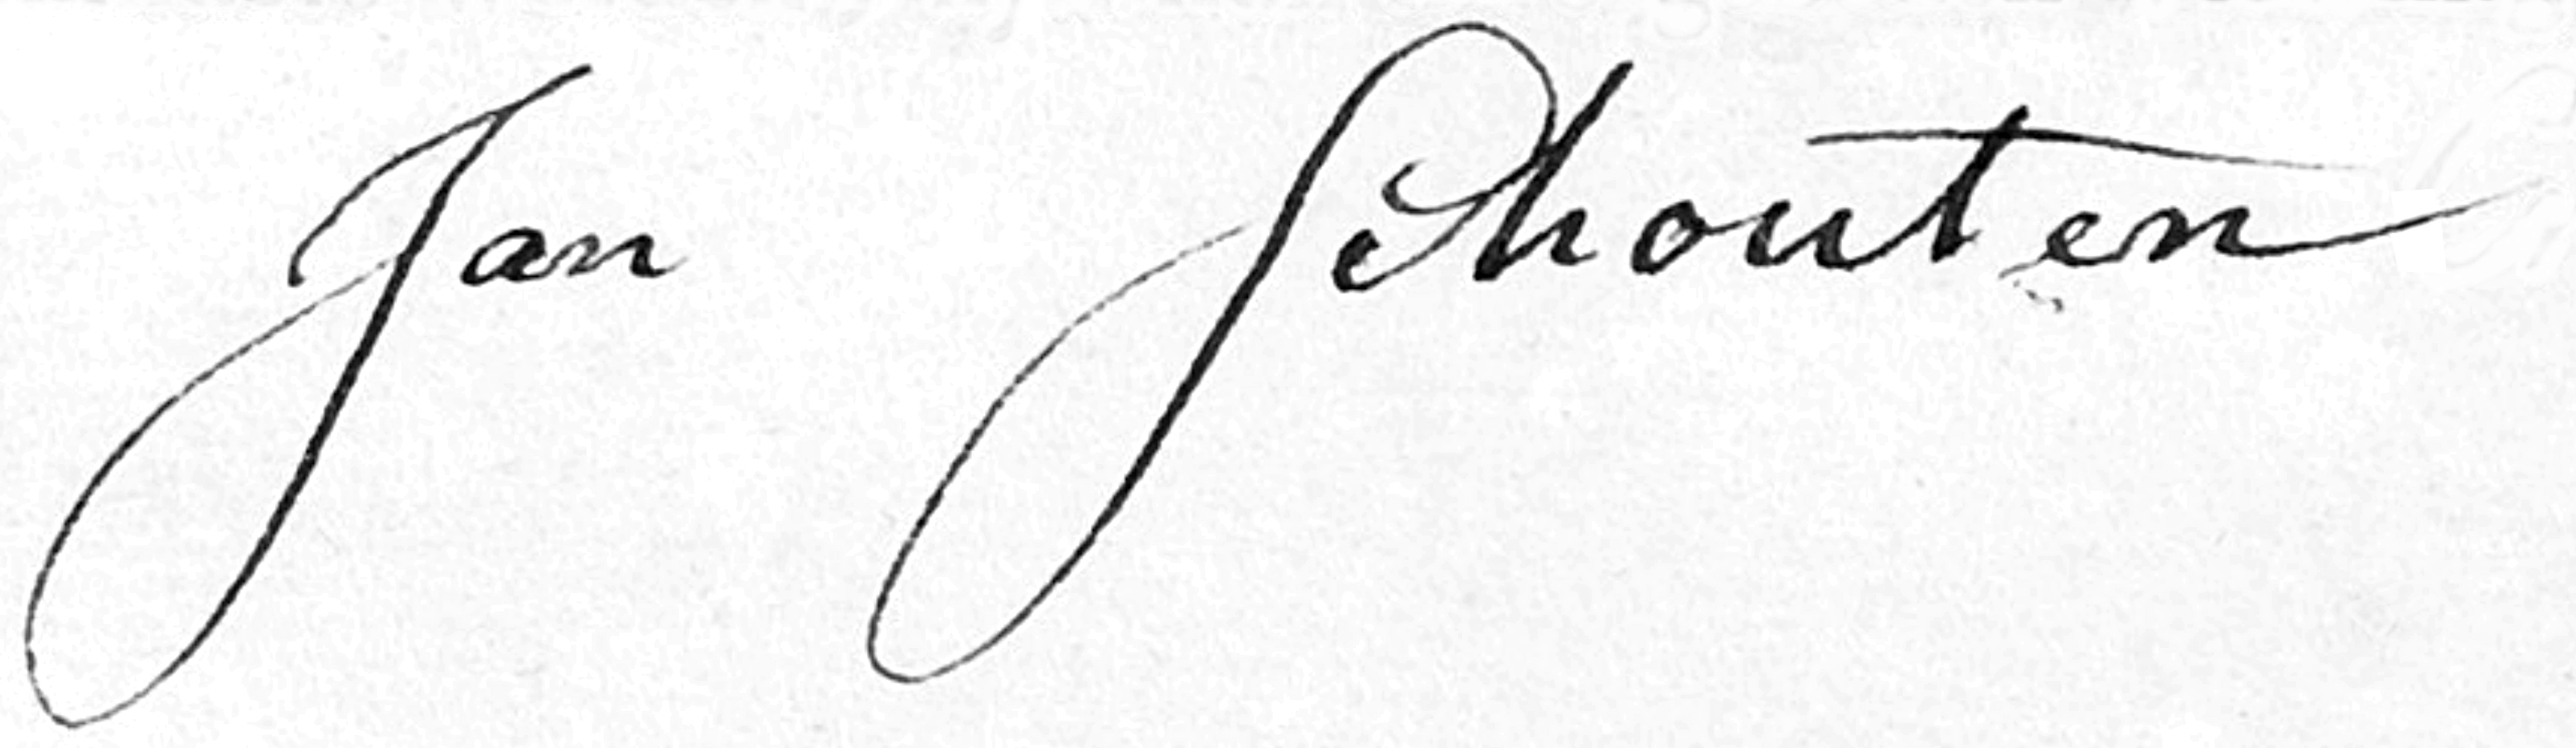 Jan Schouten